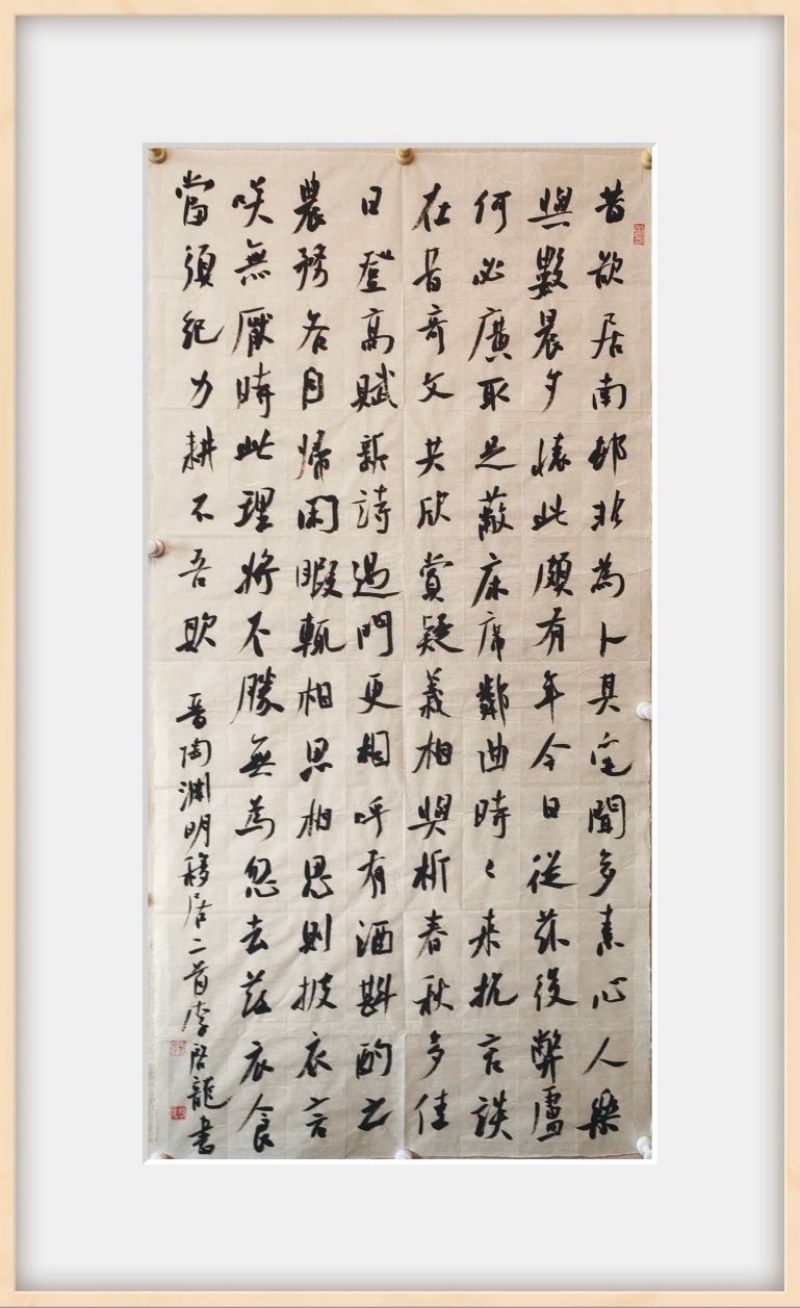 昔欲居南邨非為卜其宅聞多素心人樂
與數晨夕懷此頗有年今日從茲役弊廬
何必廣取足蔽床席鄰曲時々來抗言談
在昔奇文共欣賞疑義相與析春秋多佳
日登高賦新詩過門更相呼有酒斟酌之
農務各自歸閑暇輒相思相思則披衣言
咲無厭時此理將不勝無為忽去茲衣食
當須紀力耕不吾欺 晉陶淵明移居二首李启龍書